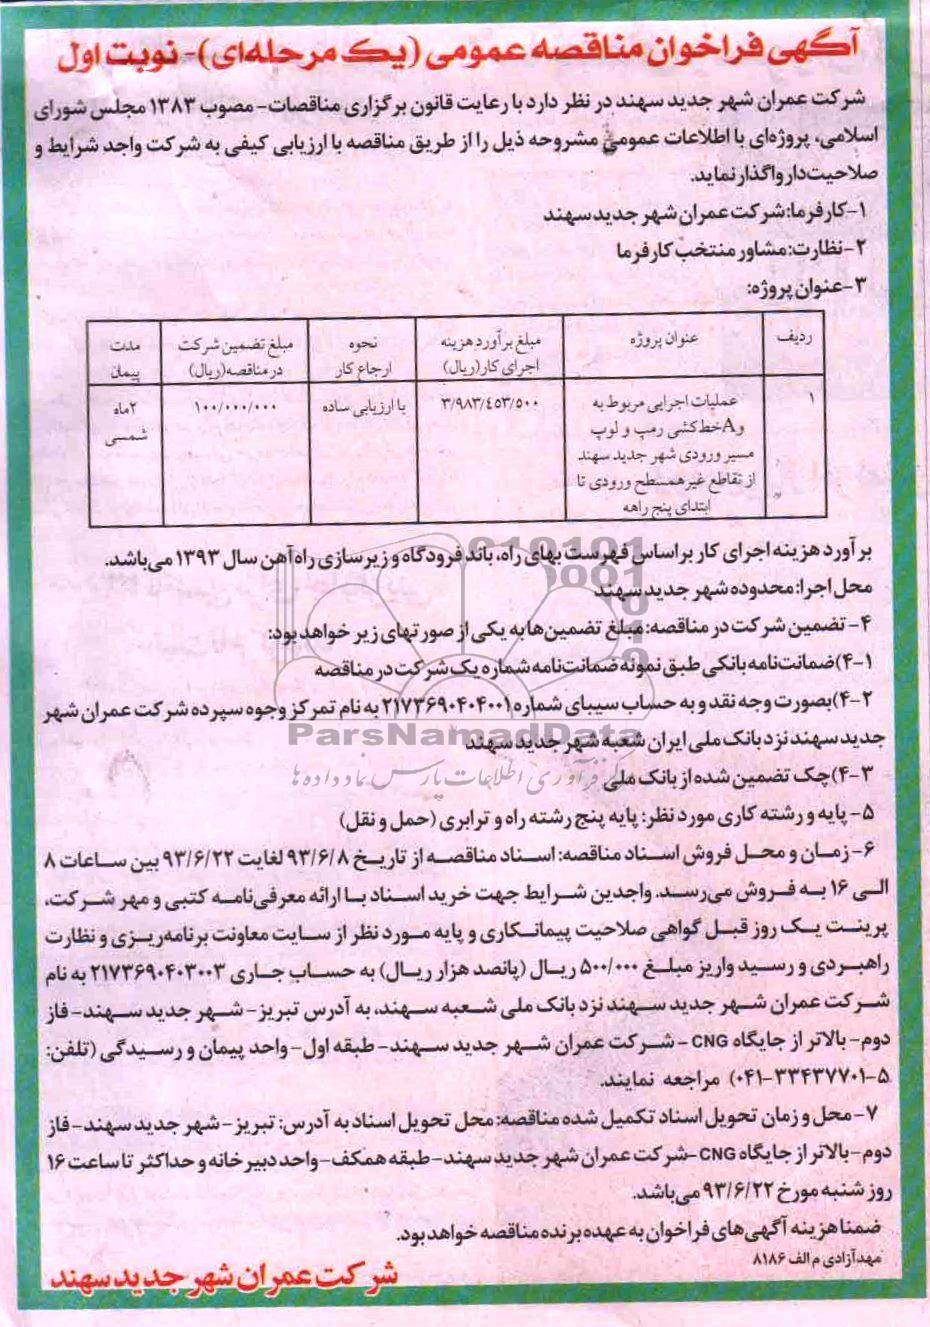 آگهی فراخوان مناقصه عمومی (یک مرحله‌ای)- نوبت اول
شرکت عمران شهر جدید سهند در نظر دارد با رعایت قانون برگزاری مناقصات- مصوب ۱۳۸۳ مجلس شورای
اسلامی، پروژه‌ای با اطلاعات عمومی مشروحه ذیل را از طریق مناقصه با ارزیابی کیفی به شرکت واجد شرایط و
صلاحیت‌دار واگذار نماید.
۱-کارفرما: شرکت عمران شهر جدید سهند
۲-نظارت: مشاور منتخب کارفرما
۳-عنوان پروژه:
ردیف
عنوان پروژه
مبلغ برآورد هزینه
اجرای کار(ریال)
نحوه
ارجاع کار
مبلغ تضمین شرکت
در مناقصه(ریال)
مدت
پیمان
۱
عملیات اجرایی مربوط به
وAخط‌کشی رمپ و لوپ
مسیر ورودی شهر جدید سهند
از تقاطع غیرهمسطح ورودی تا
ابتدای پنج راهه
۳/۹۸۳/٤٥۳/۵۰۰
با ارزیابی ساده
۱۰۰/۰۰۰/۰۰۰
۲ماه
شمسی
برآورد هزینه اجرای کار بر اساس فهرست بهای راه، باند فرودگاه و زیرسازی راه‌آهن سال ۱۳۹۳ می‌باشد.
محل اجرا: محدوده شهر جدید سهند
۴- تضمین شرکت در مناقصه: مبلغ تضمین‌ها به یکی از صورتهای زیر خواهد بود:
۴-۱)ضمانت‌نامه بانکی طبق نمونه ضمانت‌نامه شماره یک شرکت در مناقصه
۴-۲)بصورت وجه نقد و به حساب سیبای شماره ۲۱۷۳۶۹۰۴۰۴۰۰۱ به نام تمرکز وجوه سپرده شرکت عمران شهر
جدید سهند نزد بانک ملی ایران شعبه شهر جدید سهند
ParsNamadData
فرآوری اطلاعات پارس نماد داده‌ها
۴-۳)چک تضمین شده از بانک ملی
۵- پایه و رشته کاری مورد نظر: پایه پنج رشته راه و ترابری (حمل و نقل)
۶- زمان و محل فروش اسناد مناقصه: اسناد مناقصه از تاریخ ۹۳/۶/۸ لغایت ۹۳/۶/۲۲ بین ساعات ۸
الی ۱۶ به فروش می‌رسد. واجدین شرایط جهت خرید اسناد با ارائه معرفی‌نامه کتبی و مهر شرکت،
پرینت یک روز قبل گواهی صلاحیت پیمانکاری و پایه مورد نظر از سایت معاونت برنامه‌ریزی و نظارت
راهبردی و رسید واریز مبلغ ۵۰۰/۰۰۰ ریال (پانصد هزار ریال) به حساب جاری ۲۱۷۳۶۹۰۴۰۳۰۰۳ به نام
شرکت عمران شهر جدید سهند نزد بانک ملی شعبه سهند، به آدرس تبریز- شهر جدید سهند- فاز
دوم- بالاتر از جایگاه CNG - شرکت عمران شهر جدید سهند- طبقه اول- واحد پیمان و رسیدگی (تلفن:
۵-۳۳۴۳۷۷۰۱-۰۴۱) مراجعه نمایند.
۷-محل و زمان تحویل اسناد تکمیل شده مناقصه: محل تحویل اسناد به آدرس: تبریز- شهر جدید سهند- فاز
دوم-بالاتر از جایگاه CNG -شرکت عمران شهر جدید سهند- طبقه همکف- واحد دبیرخانه و حداکثر تا ساعت ۱۶
روز شنبه مورخ ۹۳/۶/۲۲ می‌باشد.
ضمنا هزینه آگهی‌های فراخوان به عهده برنده مناقصه خواهد بود.
مهد آزادی م الف ۸۱۸۶
شرکت عمران شهر جدید سهند